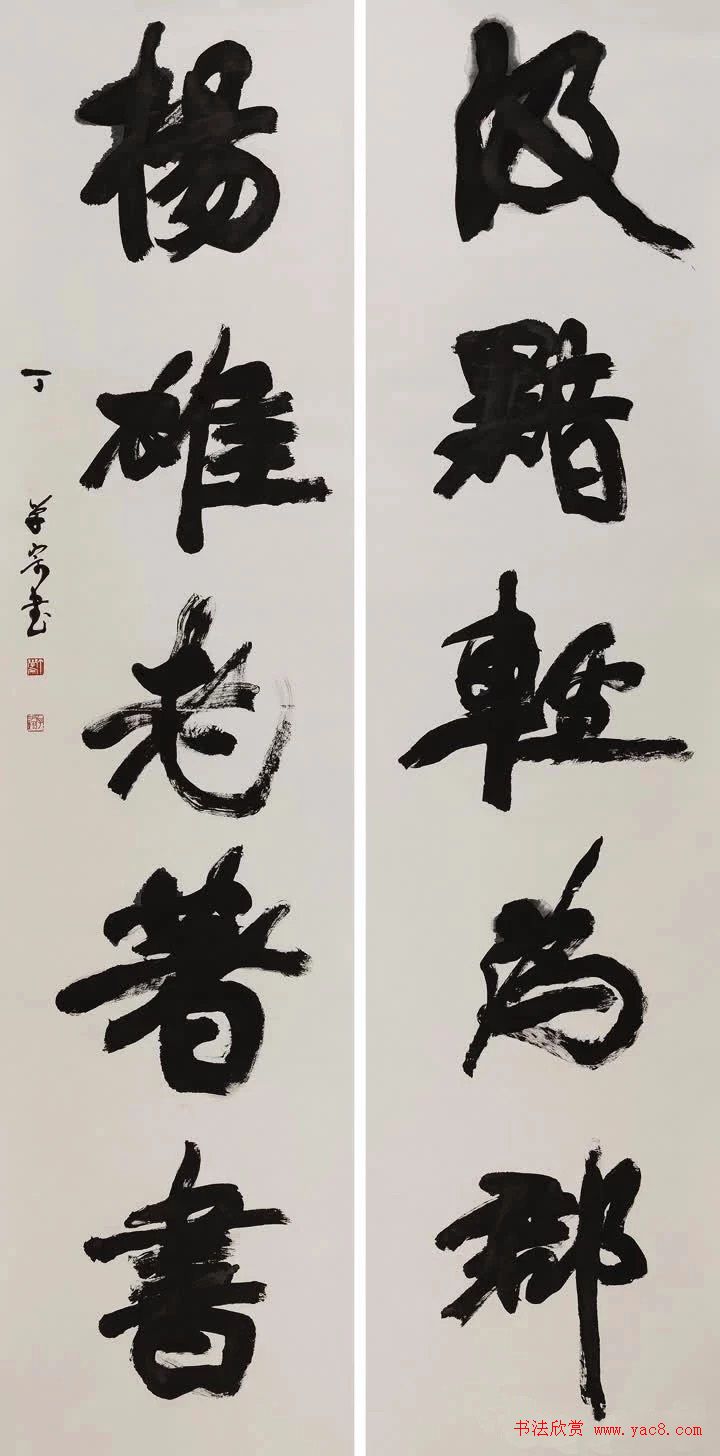 汲黯輕為郡
楊雄老著書
丁
书
书法欣赏 www.yac8.com